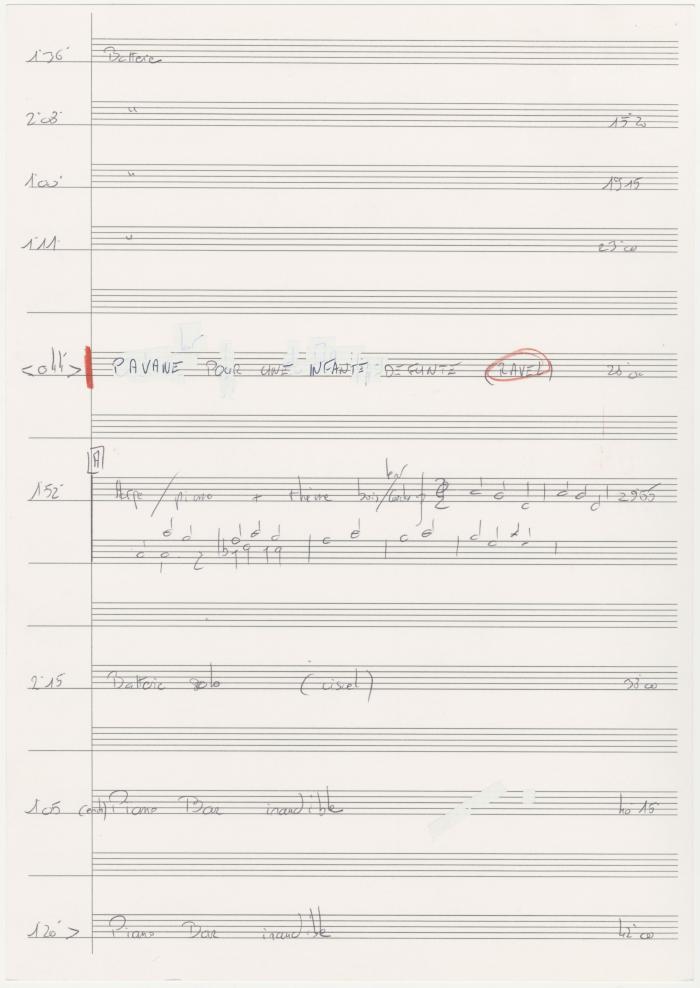 1'36" Batterie
2'08 " 15'20
1'00" " 19'15
1'11" " 23'00
<0'44"> PAVANE POUR UNE INFANTE DEFUNTE (RAVEL) 28'00
A
1'52" Harpe / piano + thème bois / 29'55
2'15 Batterie solo (cisel) 38'00
1'05 Piano Bar inaudible 40'15
1'20" > Piano Bar inaudible 42'00